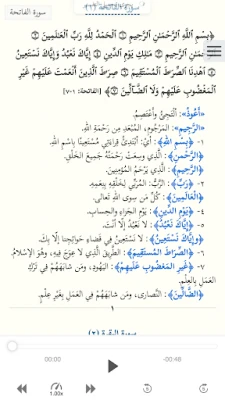 سورة الفاتحة
﴿بِسْمِ ٱللَّهِ ٱلرَّحْمَٰنِ ٱلرَّحِيمِ ۝ ٱلْحَمْدُ لِلَّهِ رَبِّ ٱلْعَٰلَمِينَ ۝
ٱلرَّحْمَٰنِ ٱلرَّحِيمِ ۝ مَٰلِكِ يَوْمِ ٱلدِّينِ ۝ إِيَّاكَ نَعْبُدُ وَإِيَّاكَ نَسْتَعِينُ
۝ ٱهْدِنَا ٱلصِّرَٰطَ ٱلْمُسْتَقِيمَ ۝ صِرَٰطَ ٱلَّذِينَ أَنْعَمْتَ عَلَيْهِمْ غَيْرِ
ٱلْمَغْضُوبِ عَلَيْهِمْ وَلَا ٱلضَّآلِّينَ ۝﴾ [الفاتحة: ١-٧]
«أَعُوذُ»: أَلْتَجِئُ وأَعْتَصِمُ.
«الرَّجِيمِ»: المَرْجُومِ، المُبْعَدِ مِن رَحْمَةِ اللَّهِ.
١- ﴿بِسْمِ اللَّهِ﴾: أَيْ: أَبْتَدِئُ قِرَاءَتِي مُسْتَعِينًا بِاسْمِ اللَّهِ.
﴿الرَّحْمَنِ﴾: الَّذِي وَسِعَتْ رَحْمَتُهُ جَمِيعَ الخَلْقِ.
﴿الرَّحِيمِ﴾: الَّذِي يَرْحَمُ المُؤْمِنِينَ.
٢- ﴿رَبِّ﴾: الرَّبُّ: المُرَبِّي لِخَلْقِهِ بِنِعَمِهِ.
﴿الْعَالَمِينَ﴾: كُلِّ مَن سِوَى اللَّهِ تَعَالَى.
٤- ﴿يَوْمِ الدِّينِ﴾: يَوْمِ الجَزَاءِ والحِسَابِ.
٥- ﴿إِيَّاكَ نَعْبُدُ﴾: لَا نَعْبُدُ إِلَّا أَنْتَ.
﴿وَإِيَّاكَ نَسْتَعِينُ﴾: لَا نَسْتَعِينُ فِي قَضَاءِ حَوَائِجِنَا إِلَّا بِكَ.
٦- ﴿الصِّرَاطَ الْمُسْتَقِيمَ﴾: الطَّرِيقَ الَّذِي لَا عِوَجَ فِيهِ، وهُوَ الإِسْلَامُ.
٧- ﴿غَيْرِ الْمَغْضُوبِ عَلَيْهِمْ﴾: اليَهُودِ، ومَن شَابَهَهُمْ فِي تَرْكِ
العَمَلِ بِالعِلْمِ.
﴿الضَّالِّينَ﴾: النَّصَارَى، ومَن شَابَهَهُمْ فِي العَمَلِ بِغَيْرِ عِلْمٍ.
١
00:00
-00:48
1.00x
5
5